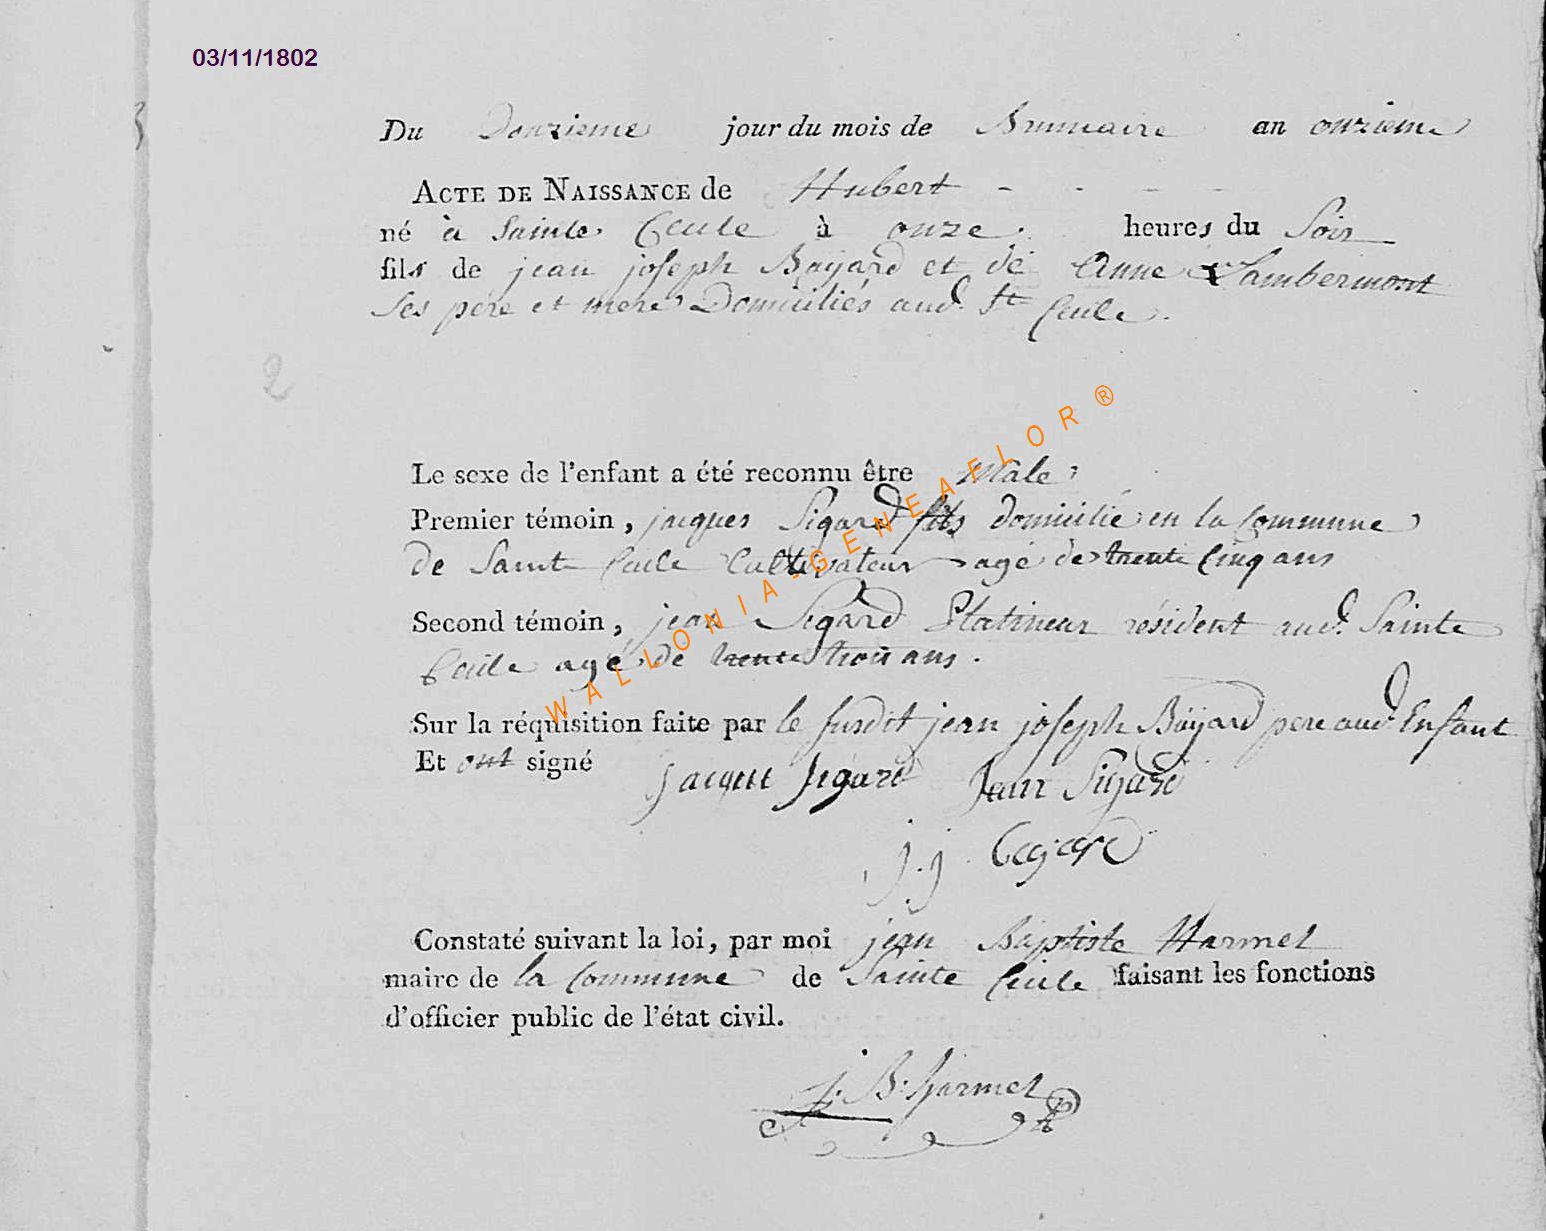 03/11/1802
3
Du Douzieme jour du mois de Brumaire an onzieme
ACTE DE NAISSANCE de Hubert - - - -
né à Sainte Cecile à onze heures du Soir
fils de jean joseph Bayard et de Anne Lambermont
Ses pere et mere Domiciliés aud. Ste Cecile.
2
Le sexe de l'enfant a été reconnu être Mâle
Premier témoin, jacques Sigard fils domicilié en la Commune
de Sainte Cecile Cultivateur agé de trente Cinq ans
Second témoin, jean Sigard Platineur résident aud. Sainte
Cecile agé de trente trois ans.
Sur la réquisition faite par le susdit jean joseph Bayard pere aud. Enfant
Et ont signé
jacque sigard Jean Sigard
j.j Bayard
Constaté suivant la loi, par moi jean Baptiste Harmel
maire de la Commune de Sainte Cecile faisant les fonctions
d'officier public de l'état civil.
J. B. harmel
WALLONIA-GENEAFLOR®